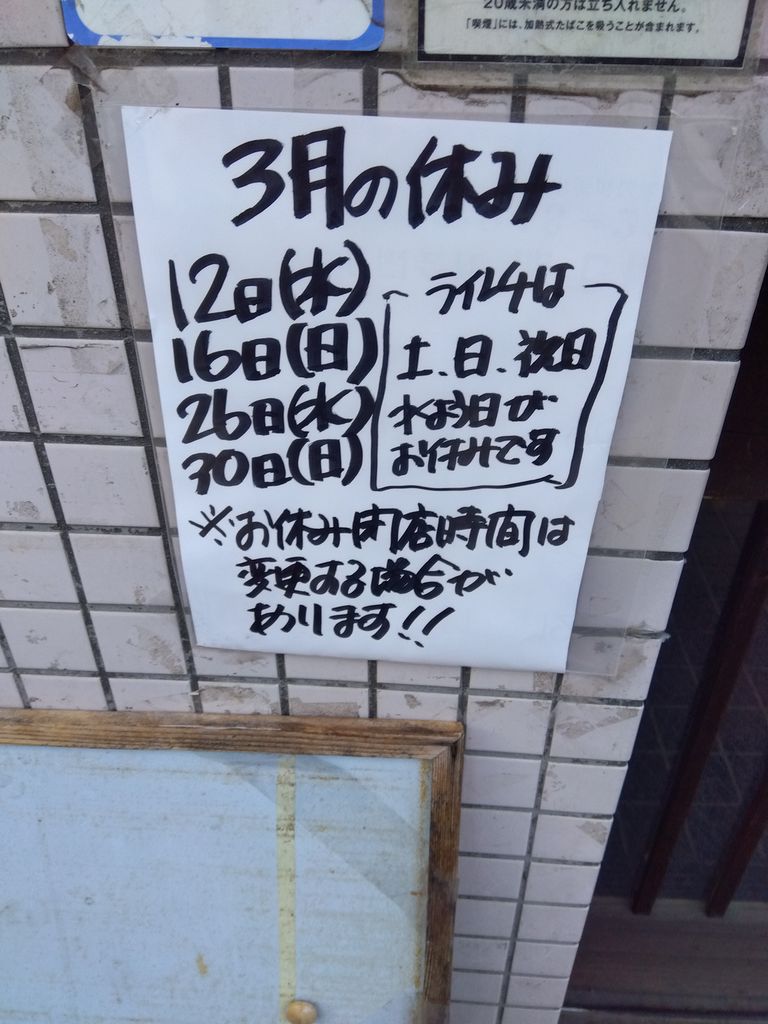 20歳未満の方は立ち入れません。
「喫煙」には、加熱式たばこを吸うことが含まれます。
3月の休み
12日(水)
16日(日)
26日(水)
30日(日)
は
土、日、祝日
水よう日が
お休みです
※お休み閉店時間は
変更する場合が
あります!!